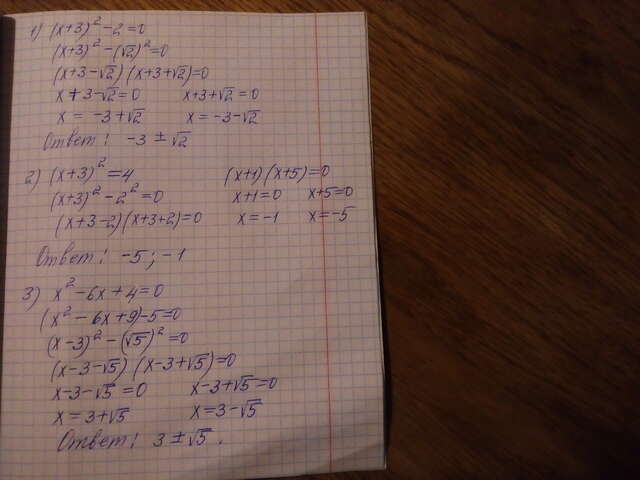 1) (x+3)² - 2 = 0
(x+3)² - (√2)² = 0
(x+3-√2)(x+3+√2)=0
x+3-√2=0   x+3+√2=0
x = -3+√2   x = -3-√2
Ответ: -3 ± √2
2) (x+3)² = 4   (x+1)(x+5)=0
(x+3)² - 2² = 0   x+1=0   x+5=0
(x+3-2)(x+3+2)=0   x=-1   x=-5
Ответ: -5; -1
3) x² - 6x + 4 = 0
(x² - 6x + 9) - 5 = 0
(x-3)² - (√5)² = 0
(x-3-√5)(x-3+√5)=0
x-3-√5=0   x-3+√5=0
x = 3+√5   x = 3-√5
Ответ: 3 ± √5.